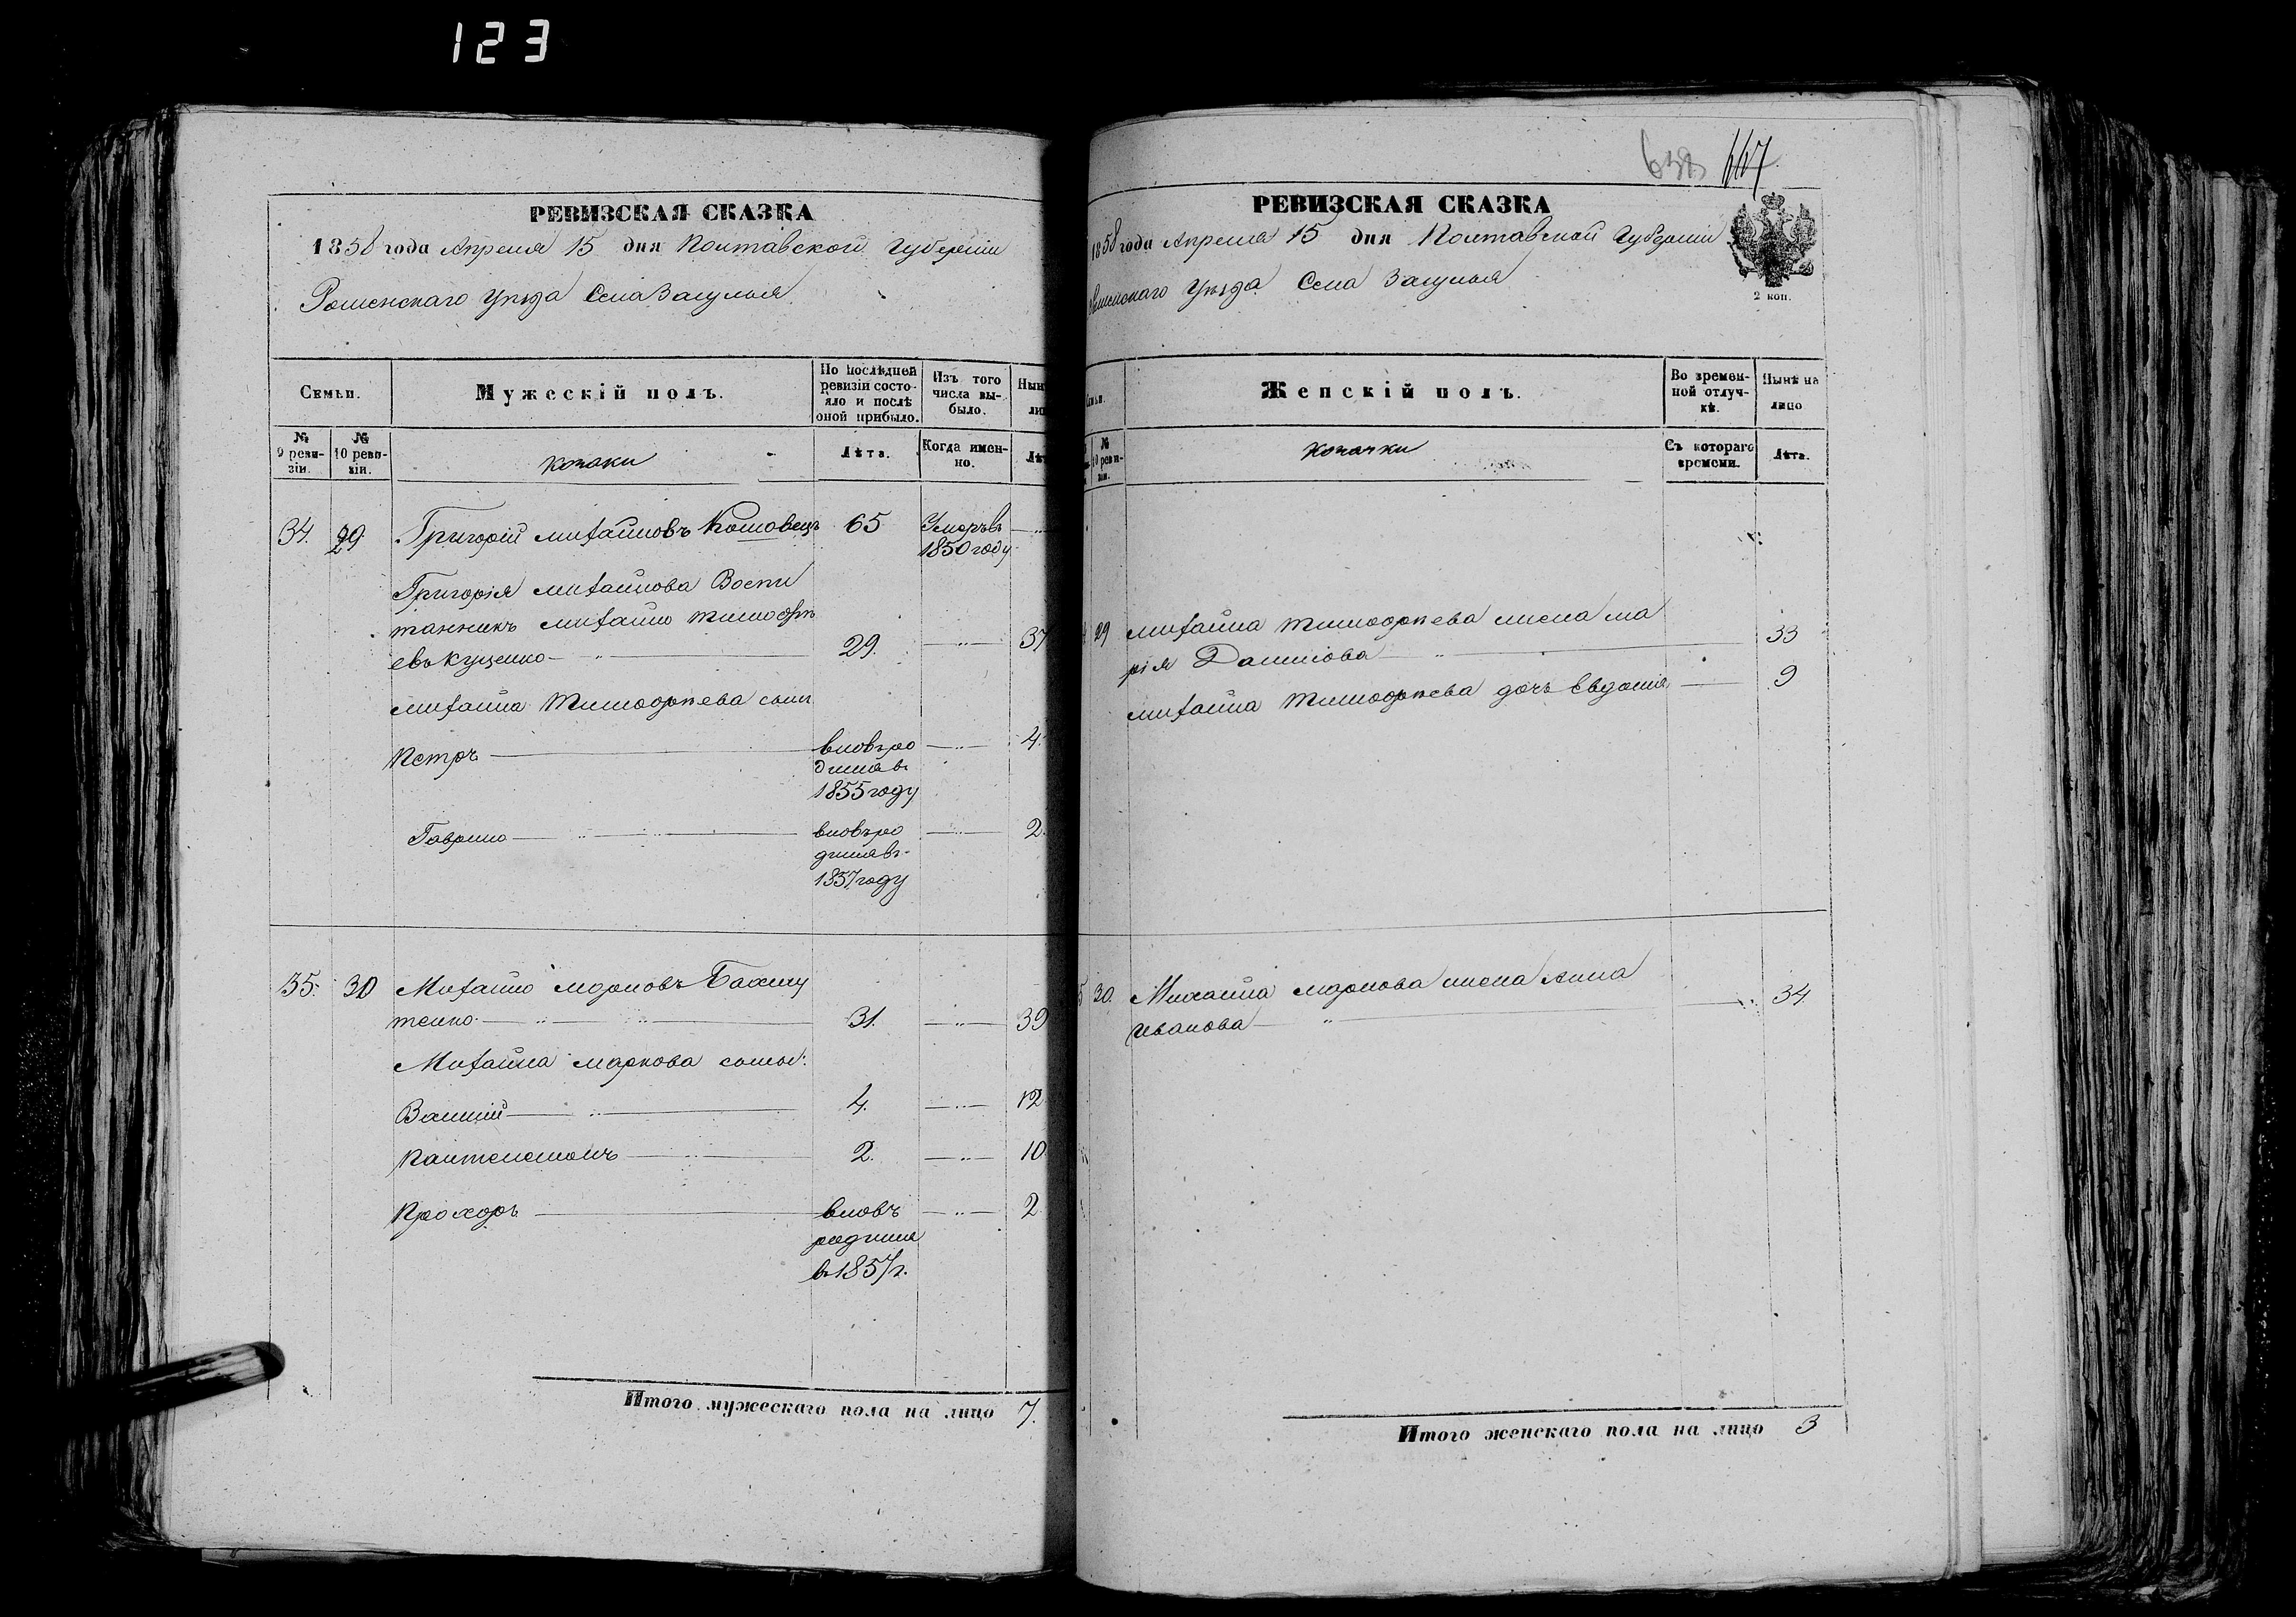 123
РЕВИЗСКАЯ СКАЗКА
1858 года Апреля 15 дня Полтавской Губерніи
Роменскаго Уѣзда Села Засулья
Семьи.
Мужескій полъ.
По послѣдней ревизіи состояло и послѣ оной прибыло.
Изъ того числа выбыло.
№ 9 ревизіи.
№ 10 ревизіи.
козаки
Лѣта.
Когда именно.
34. 29. Григорій Михайловъ 65 Умеръ въ
1850 году
Григорія Михайлова Воспи
танникъ Михайло Тимофѣ
евъ Куценко 29. 37
Михайла Тимофѣева сынъ
Петръ вновь ро 4.
дился въ
1855 году
Гаврило вновь ро 2.
дился въ
1857 году
35. 30 Михайло Марковъ
тенко 31. 39
Михайла Маркова сыны:
Василій 4. 12
Пантелеймонъ 2. 10
Прохоръ вновь 2
родился
въ 1857 г.
Итого мужескаго пола на лицо 7.
667
РЕВИЗСКАЯ СКАЗКА
1858 года Апреля 15 дня Полтавской Губерніи
Роменскаго Уѣзда Села Засулья
2 коп.
Женскій полъ.
Во временной отлучкѣ.
Нынѣ на лицо
№ 10 ревизіи.
козачки
Съ котораго времени.
Лѣта.
29 Михайла Тимофѣева жена Ма
рія Данилова 33
Михайла Тимофѣева дочь Евдокія 9
30. Михайла Маркова жена Анна
Иванова 34
Итого женскаго пола на лицо 3